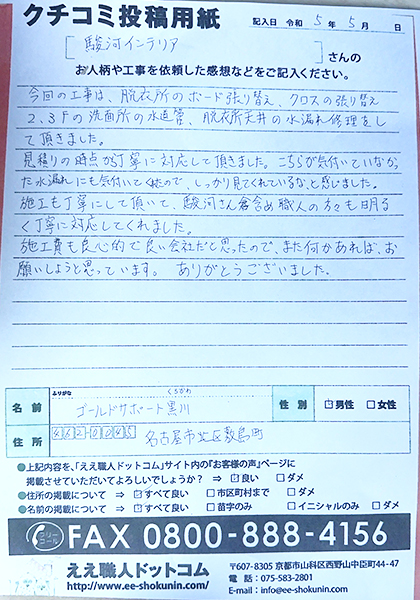 クチコミ投稿用紙
記入日 令和 5年 5月 日
[駿河インテリア]さんの
お人柄や工事を依頼した感想などをご記入ください。
今回の工事は、脱衣所のボード張り替え、クロスの張り替え
2.3Fの洗面所の水道管、脱衣所天井の水漏れ修理をし
て頂きました。
見積りの時点から丁寧に対応して頂きました。こちらが気付いていなかっ
た水漏れにも気付いてくれたので、しっかり見てくれているな、と感じました。
施工も丁寧にして頂いて、駿河さん含め職人の方々も明る
く丁寧に対応してくれました。
施工費も良心的で良い会社だと思ったので、また何かあれば、お
願いしようと思っています。 ありがとうございました.
ふりがな くろかわ
名前 ゴールドサポート黒川 性別 ☑男性 □女性
住所 462-0045 名古屋市北区敷島町
●上記内容を、「ええ職人ドットコム」サイト内の『お客様の声』ページに
掲載させていただいてよろしいでしょうか? ⇒ ☑良い □ダメ
●住所の掲載について ⇒ ☑すべて良い □市区町村まで □ダメ
●名前の掲載について ⇒ ☑すべて良い □苗字のみ □イニシャルのみ □ダメ
フリーコール FAX 0800-888-4156
ええ職人ドットコム
http://www.ee-shokunin.com/
〒607-8305 京都市山科区西野山中臣町44-47
電話:075-583-2801
E-mail:info@ee-shokunin.com